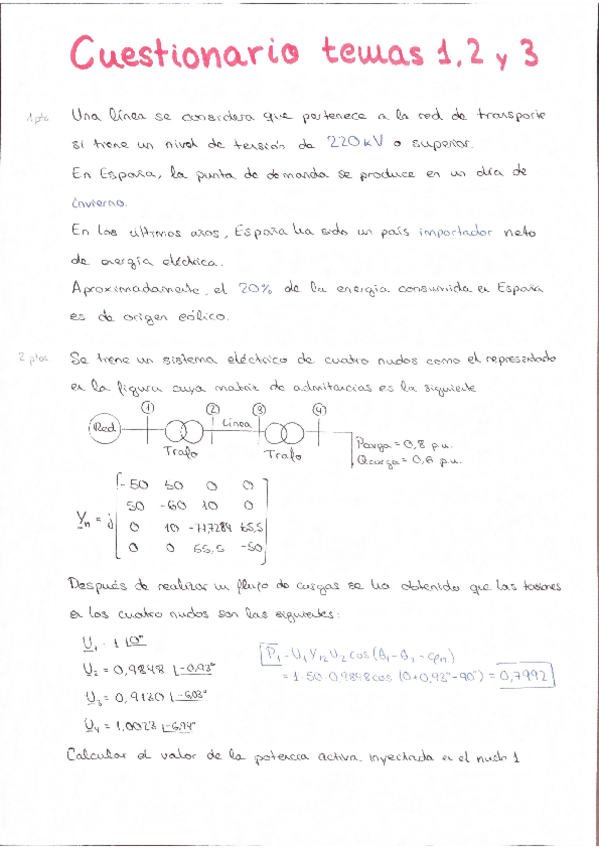 Cuestionario temas 1, 2 y 3
1 pto
Una línea se considera que pertenece a la red de transporte
si tiene un nivel de tensión de 220 kV o superior.
En España, la punta de demanda se produce en un día de
invierno.
En los últimos años, España ha sido un país importador neto
de energía eléctrica.
Aproximadamente, el 20% de la energía consumida en España
es de origen eólico.
2 ptos
Se tiene un sistema eléctrico de cuatro nudos como el representado
en la figura cuya matriz de admitancias es la siguiente
(1) (2) Línea (3) (4)
Red
Trafo Trafo
Pcarga = 0,8 p.u.
Qcarga = 0,6 p.u.
-50 50 0 0
50 -60 10 0
Yn = j
0 10 -71,7284 65,5
0 0 55,5 -50
Después de realizar un flujo de cargas se ha obtenido que las tensiones
en los cuatro nudos son las siguientes:
U1 = 1 |0°
U2 = 0,9848 |-0,93°
U3 = 0,9130 |-6,03°
U4 = 1,0023 |-6,74°
P1 = U1 Y12 U2 cos (θ1 - θ2 - φ12)
= 1·50·0,9848 cos (0+0,93°-90°) = 0,7992
Calcular el valor de la potencia activa inyectada en el nudo 1